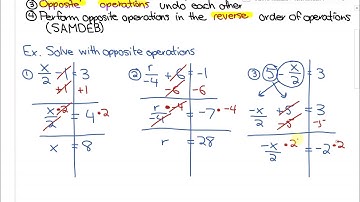 ③ Opposite operations undo each other
④ Perform opposite operations in the reverse order of operations
(SAMDEB)
Ex. Solve with opposite operations
① x/2 - 1 = 3
+1 +1
x/2 • 2 = 4 • 2
x = 8
② r/-4 + 6 = -1
-6 -6
r/-4 • -4 = -7 • -4
r = 28
③ 5 - x/2 = 3
-x/2 + 5 = 3
-5 -5
-x/2 • 2 = -2 • 2